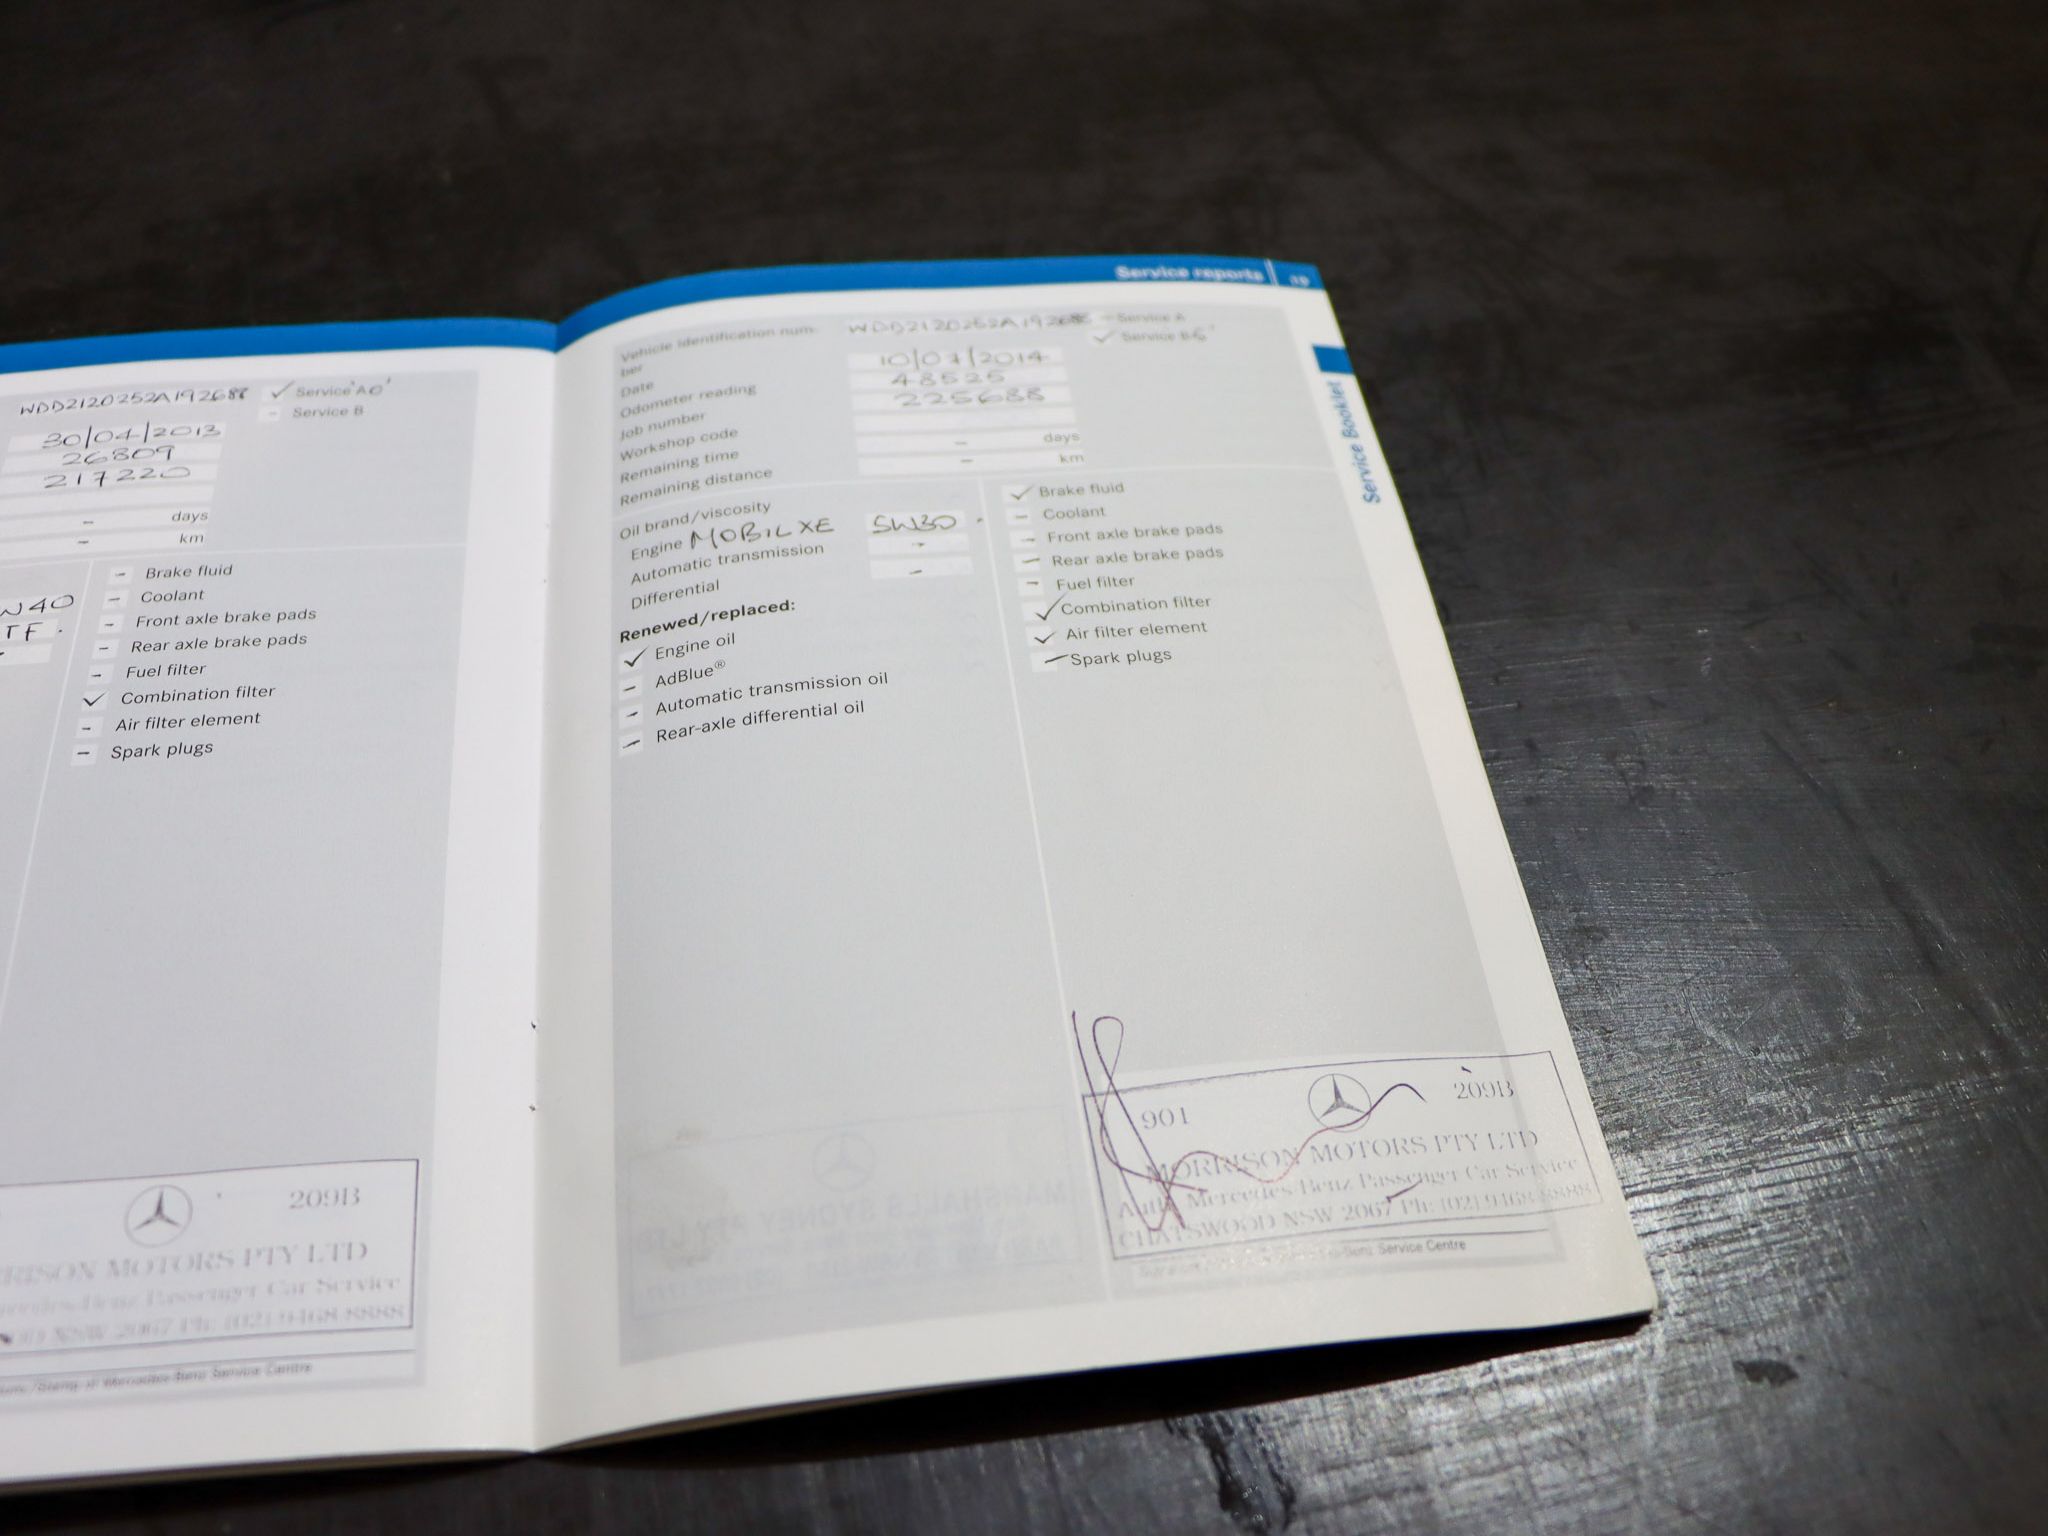 WDD2120252A192688 ✓ Service 'A0'
- Service B
30/04/2013
26809
217220
- days
- km
W40
TF.
-
- Brake fluid
- Coolant
- Front axle brake pads
- Rear axle brake pads
- Fuel filter
✓ Combination filter
- Air filter element
- Spark plugs
209B
RISON MOTORS PTY LTD
Passenger Car Service
NSW 2067 Ph: (02) 9468 8888
Mercedes-Benz Service Centre
Service reports 19
Service Booklet
Vehicle identification num-
ber WDD2120252A192688 - Service A
✓ Service B
Date 10/07/2014
Odometer reading 48525
Job number 225688
Workshop code
Remaining time - days
Remaining distance - km
Oil brand/viscosity
Engine MOBIL XE 5W30 .
Automatic transmission -
Differential -
Renewed/replaced:
✓ Engine oil
- AdBlue®
- Automatic transmission oil
- Rear-axle differential oil
✓ Brake fluid
- Coolant
- Front axle brake pads
- Rear axle brake pads
- Fuel filter
✓ Combination filter
✓ Air filter element
- Spark plugs
901 209B
MORRISON MOTORS PTY LTD
Auth. Mercedes-Benz Passenger Car Service
CHATSWOOD NSW 2067 Ph: (02) 9468 8888
Service Centre
MARSHALLS SYDNEY PTY LTD